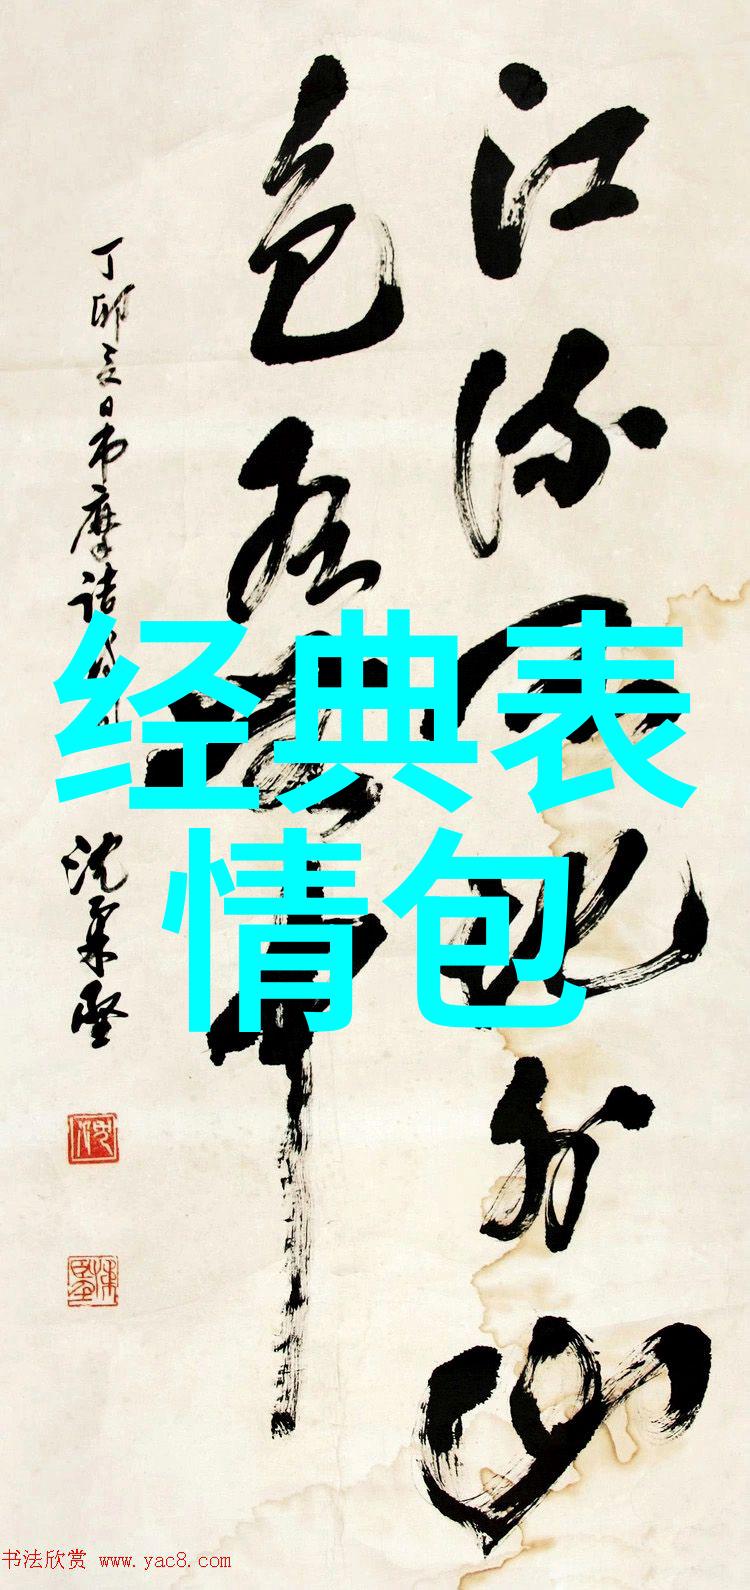 江流天地外山
色有無中
丁卯夏日书摩诘
经典表
情包
书法欣赏 www.yac8.com